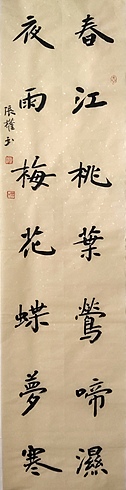 春江桃葉鶯啼濕
夜雨梅花蝶夢寒
張權書